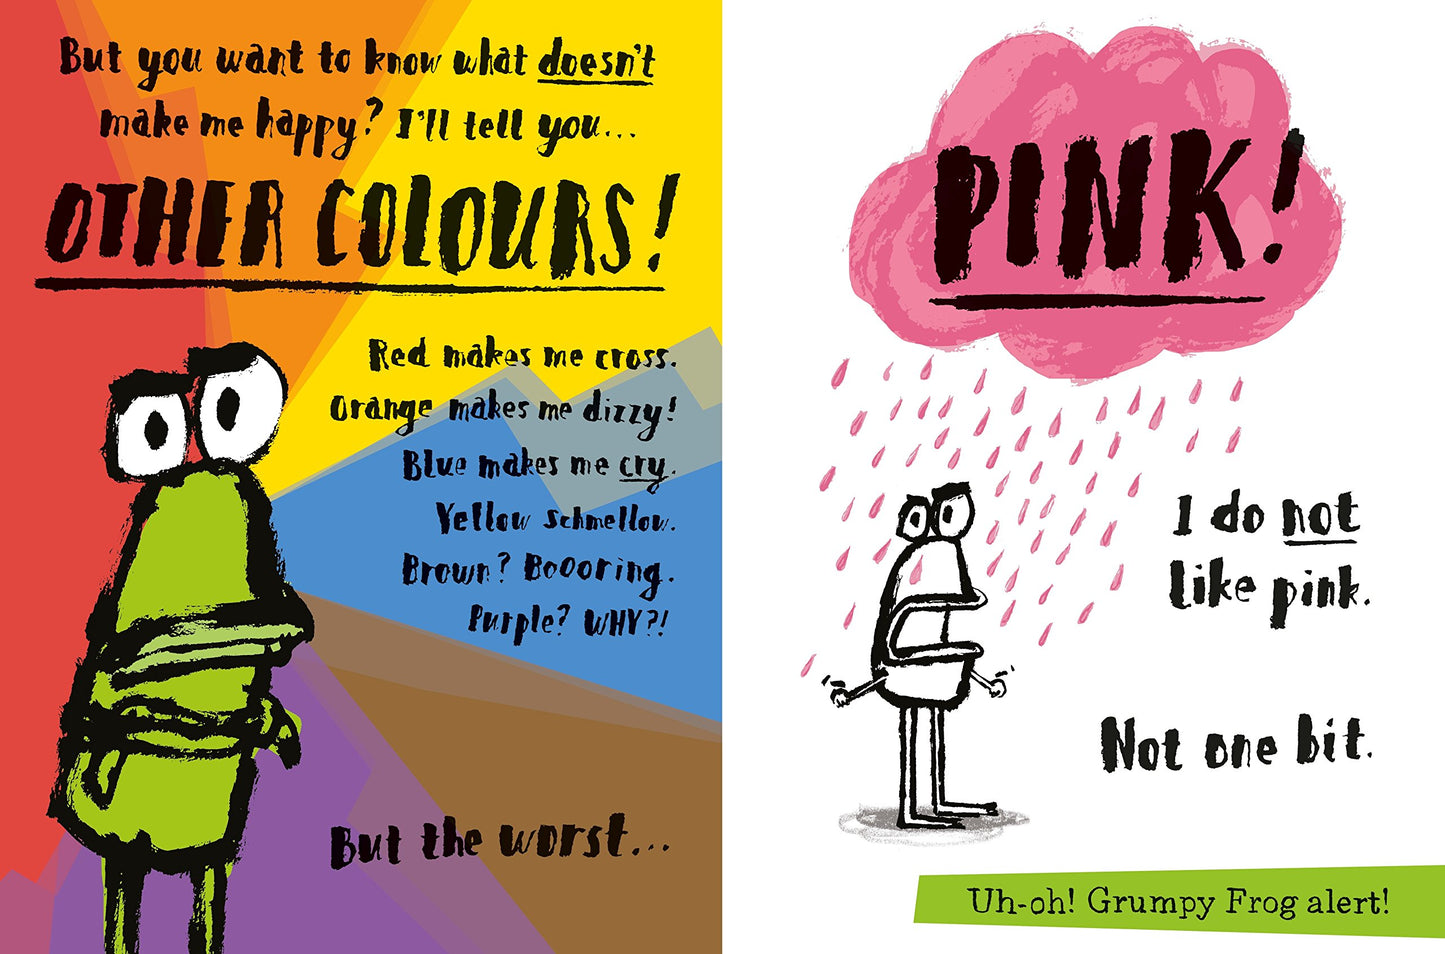 But you want to know what doesn't
make me happy? I'll tell you...
OTHER COLOURS!
Red makes me cross.
Orange makes me dizzy!
Blue makes me cry.
Yellow schmellow.
Brown? Boooring.
Purple? WHY?!
But the worst...
PINK!
I do not
like pink.
Not one bit.
Uh-oh! Grumpy Frog alert!